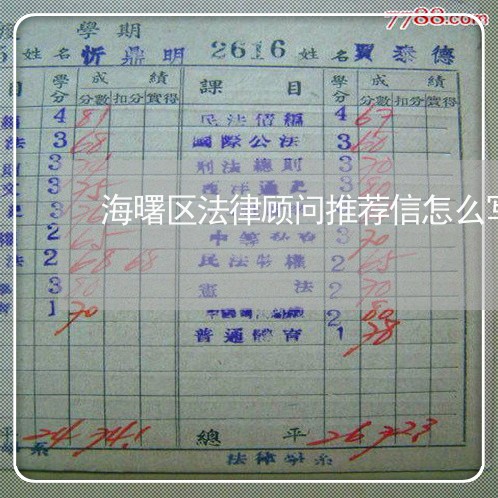 7788.com
學期
5 姓名 忻鼎明 2616 姓名 賈泰德
目 學分 成績 課目 學分 成績
分數 扣分 實得 分數 扣分 實得
4 81 民法債編 4 67
法 3 68 國際公法 3 60
3 刑法總則 3 70
3 75 西洋通史 3
海曙区法律顾问推荐信怎么写
2 65 3 70
法 2 68 68 民法物權 2 65
3 80 憲法 2 70
1 70 2 80
普通體育 1 78
平 24 74.1 總平 26 72.3
系 法律學系